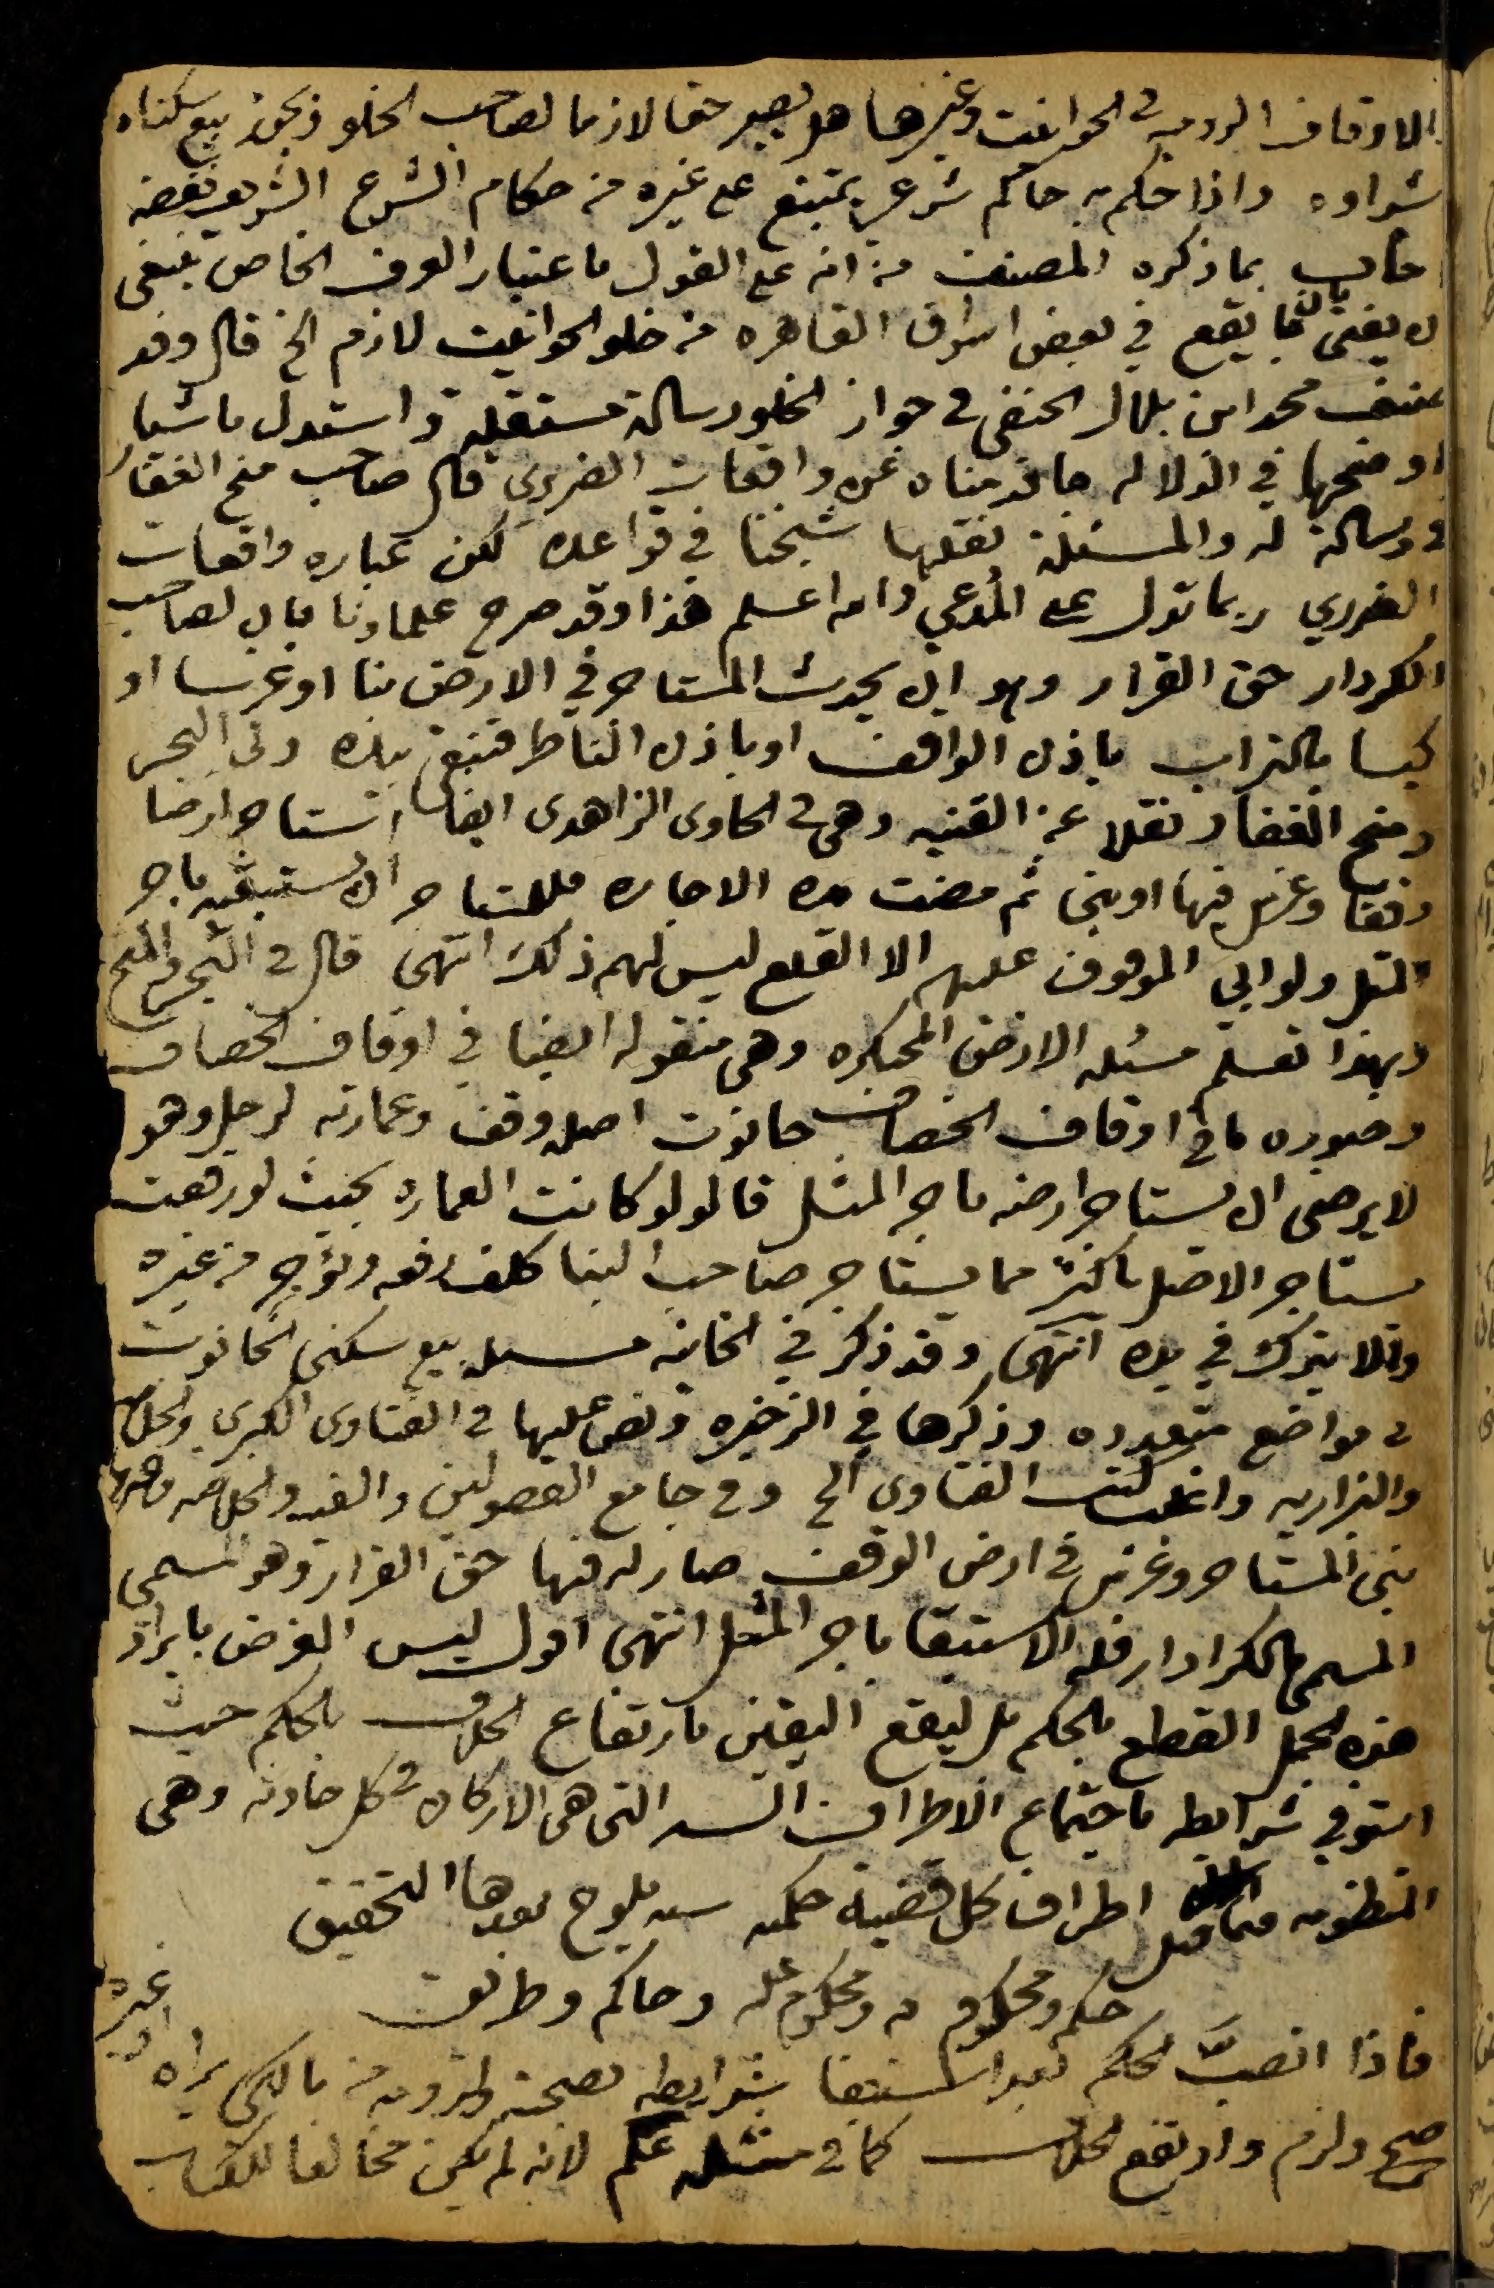 الاوقاف الروميه في الحوانيت وغيرها هل يصير حقا لازما لصاحب الخلو ويجوز بيع سكناه
شراوه واذا حكم به حاكم شرعي يمتنع على غيره من حكام الشرع الشريف نقضه
جاب بما ذكره المصنف من انه على القول باعتبار العرف الخاص ينبغي
ان يفتى بان ما يقع في بعض اسواق القاهره من خلو الحوانيت لازم الخ قال وقد
صنف محمد ابن بلال الحنفي في جواز الخلو رسالة مستقلة واستدل باشيا
اوضحها في الدلاله ما قدمناه عن واقعات الضريري قال صاحب منح الغفار
في رسالة له والمسئلة نقلها شيخنا في قواعده لكن عباره واقعات
الضريري ربما تدل على المدعي والله اعلم هذا وقد صرح علماونا بان لصاحب
الكردار حق القرار وهو ان يحدث المستاجر في الارض بنا او غرسا او
كبسا بالتراب باذن الواقف او باذن الناظر فتبقى بيده وفي البحر
ومنح الغفار نقلا عن القنيه وهي في الحاوي الزاهدي ايضا استاجر ارضا
وقفا وغرس فيها او بنى ثم مضت مدة الاجاره فللمستاجر ان يستبقيها باجر
المثل ولو ابى الموقوف عليهم الا القلع ليس لهم ذلك انتهى قال في البحر والمنح
وبهذا تعلم مسئله الارض المحتكره وهي منقوله ايضا في اوقاف الخصاف
وصوره ما في اوقاف الخصاف حانوت اصله وقف وعمارته لرجل وهو
لا يرضى ان يستاجر ارضه باجر المثل قالوا لو كانت العماره بحيث لو رفعت
يستاجر الاصل باكثر مما يستاجر صاحب البنا كلف رفعه ويؤجر من غيره
والا يترك في يده انتهى وقد ذكر في الخانيه مسئله بيع سكنى الحانوت
في مواضع متعدده وذكرها في الذخيره ونص عليها في الفتاوى الكبرى والخلاصه
والبزازيه واغلب كتب الفتاوى الخ وفي جامع الفصولين والقنيه والخلاصه وغيرها
بنى المستاجر وغرس في ارض الوقف صار له فيها حق القرار وهو المسمى
المسمى بالكرادار فله الاستبقا باجر المثل انتهى اقول ليس الغرض بايراد
هذه الجمل القطع بالحكم بل ليقع اليقين بارتفاع الخلاف بالحكم حيث
استوفى شرايطه باجتماع الاطراف السته التي هي الاركان في كل حادثه وهي
المنظومه فيما قيل اطراف كل قضية حكميه سته يلوح بعدها التحقيق
حكم ومحكوم به ومحكوم عليه وحاكم وطريق
فاذا انصب الحكم بعد استيفا شرايطه بصحته ولزومه من مالكي يراه او غيره
صح ولزم وارتفع الخلاف كما في مسئلة لانه لم يكن مخالفا للكتاب